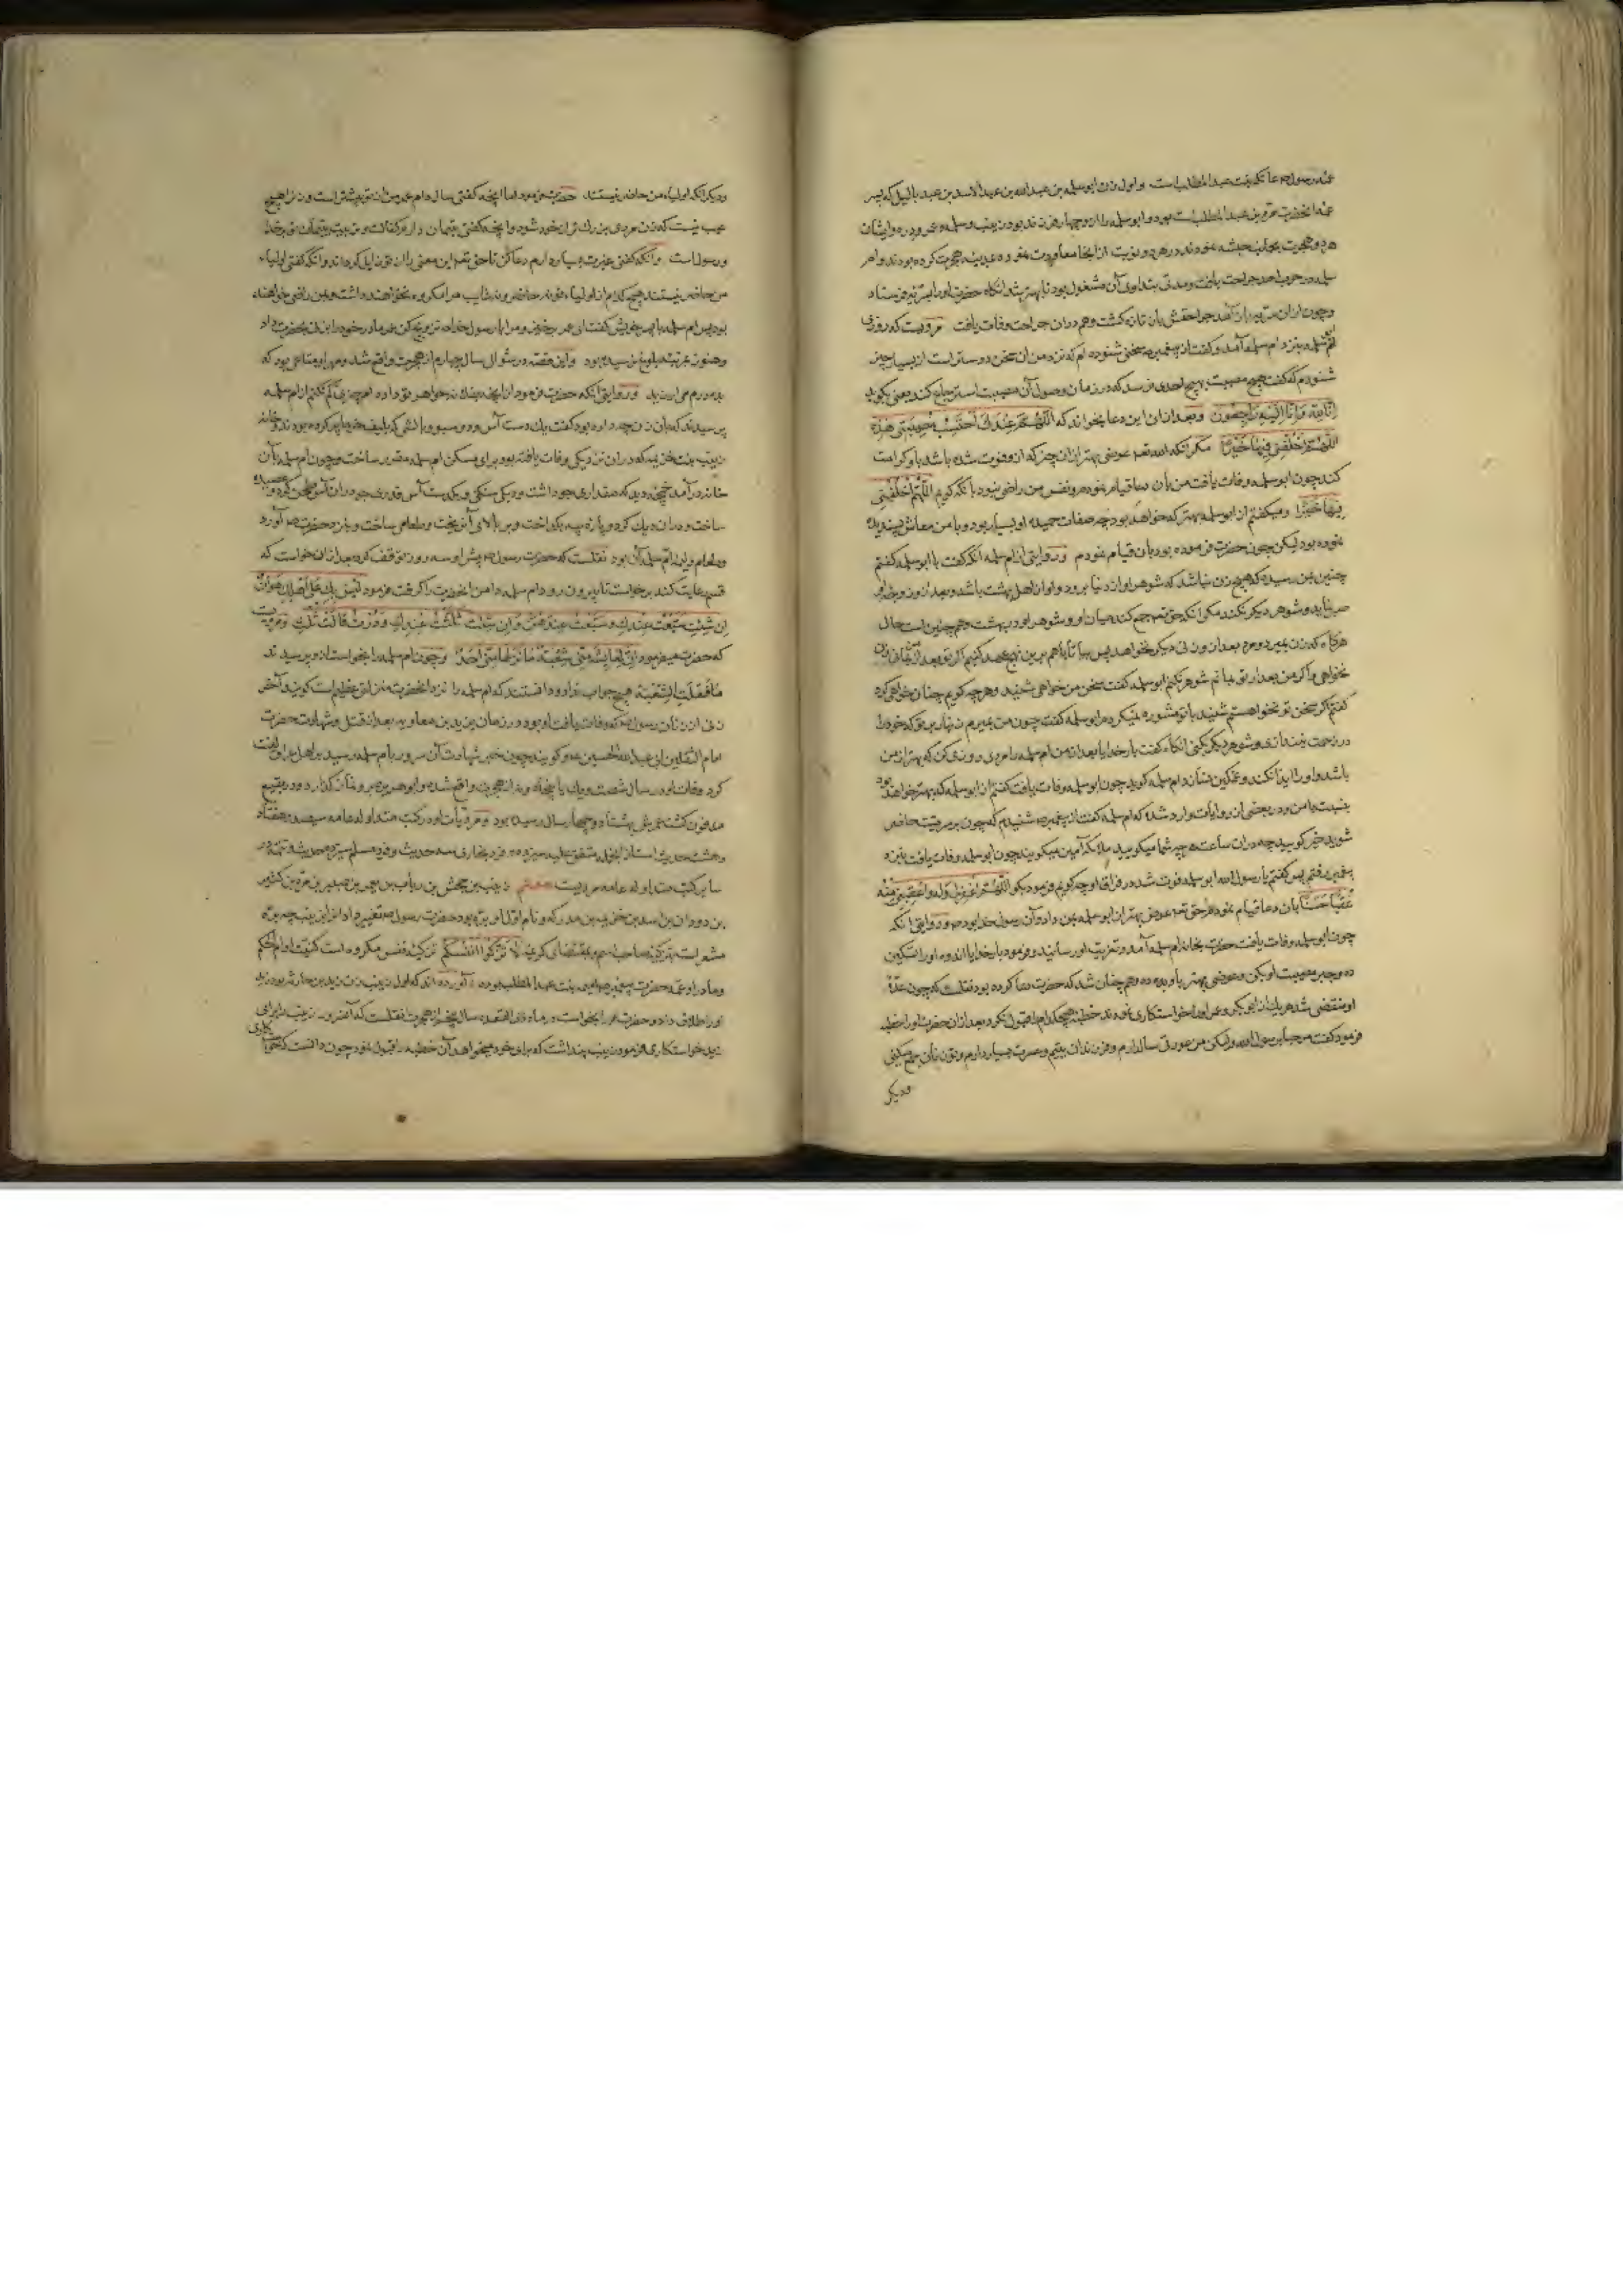 عمه رسول صه عاتکه بنت عبدالمطلب است و اول زن ابوسلمه بن عبدالله بن عبدالاسد بن عبد یالیل که پسر
عمه آنحضرت بره بنت عبدالمطلب است بود و ابوسلمه را ازو چهار فرزند بود زینب و سلمه و عمرو و دره و ایشان
هر دو هجرت بجانب حبشه نمودند در هر دو نوبت از آنجا معاودت نموده بمدینه هجرت کرده بودند و ابو
سلمه در حرب احد جراحت یافت و مدتی بتداوی آن مشغول بود تا بهتر شد انکاه حضرت او را بسریه فرستاد
و چون ازان سریه باز آمد جراحتش بآن تازه کشت و هم دران جراحت وفات یافت مرویست که روزی
ابو سلمه بنزد ام سلمه آمد و کفت از پیغمبر صه سخنی شنوده ام که نزد من آن سخن دوستر است از بسیار چیز
شنودم که کفت هیچ مصیبت بهیچ احدی نرسد که در زمان وصول آن مصیبت استرجاع کند یعنی بکوید
اِنّا لِلّٰه وَاِنّا اِلَیهِ رَاجِعُون و بعد ازان این دعا بخواند که اللّهُمَّ عِندَكَ اَحتَسِبُ مُصِیبَتِی هٰذِهِ
اللّهُمَّ اخلُفنِی فِیهَا خَیرًا مکر آنکه الله تعه عوضی بهتر ازان چیز که ازو فوت شده باشد باو کرامت
کند چون ابوسلمه وفات یافت من بآن دعا قیام نمودم و نفس من راضی نبود بآنکه کویم اللّهُمَّ اخلُفنِی
فِیهَا خَیرًا و میکفتم از ابوسلمه بهتر که خواهد بود چه صفات حمیده او بسیار بود و با من معاش پسندیده
نموده بود لیکن چون حضرت فرموده بود بآن قیام نمودم و روایتی از ام سلمه آنکه کفت با ابوسلمه کفتم
چنین بمن رسیده که هیچ زن نباشد که شوهر او از دنیا برود و او از اهل بهشت باشد و بعد ازو زن او
صبر نماید و شوهر دیکر نکند مکر آنکه حق تعه جمع کند میان او و شوهر او در بهشت و هم چنین است حال
هرکاه که زن بمیرد و مرد بعد ازو زنی دیکر نخواهد پس بیا تا با هم برین نهج عهد کنیم که تو بعد از من زن
نخواهی و اکر من بعد از تو بمانم شوهر نکنم ابوسلمه کفت سخن من خواهی شنید و هر چه کویم چنان خواهی کرد
کفتم اکر سخن تو نخواستم شنید با تو مشوره نمیکردم ابوسلمه کفت چون من بمیرم زنهار بر تو که خود را
در زحمت نیندازی و شوهر دیکر بکنی انکاه کفت بار خدایا بعد از من ام سلمه را مردی روزی کن که بهتر از من
باشد و او را ایذا نکند و غمکین نسازد ام سلمه کوید چون ابوسلمه وفات یافت کفتم از ابوسلمه که بهتر خواهد بود
بنسبت با من و در بعضی از روایات وارد شده که ام سلمه کفت از پیغمبر صه شنیدم که چون بر سر میت حاضر
شوید خیر کویید چه دران ساعت هر چه شما میکویید ملائکه آمین میکویند چون ابوسلمه وفات یافت بنزد
پیغمبر رفتم پس کفتم یا رسول الله ابوسلمه فوت شد در فراق او چه کویم فرمود بکو اللّهُمَّ اغفِر لِی وَلَهُ وَاَعقِبنِی مِنهُ
عُقبًا حَسَنًا بآن دعا قیام نمودم حق تعه عوض بهتر از ابوسلمه بمن داد و آن رسول خدا بود صه و روایتی آنکه
چون ابوسلمه وفات یافت حضرت بخانه ام سلمه آمد و تعزیت او رسانید و فرمود بار خدایا اندوه او را تسکین
ده و جبر مصیبت او بکن و عوضی بهتر باو بده و هم چنان شد که حضرت دعا کرده بود نقلست که چون عدّهٔ
او منقضی شد هر یک از ابوبکر و عمر او را خواستکاری نمودند خطبه هیچکدام را قبول نکرد بعد ازان حضرت او را خطبه
فرمود کفت مرحبا برسول الله ولیکن من عورتی سالدارم و فرزندان یتیم و غیرت بسیار دارم و تو زنان جمع میکنی
و دیکر
و دیکر آنکه اولیاء من حاضر نیستند حضرت فرمود اما آنچه کفتی سال دارم عمر من از تو بیشتر است و زن را هیچ
عیب نیست که زن مردی بزرک تر از خود شود و آنچه کفتی یتیمان دارم کفالت و تربیت یتیمان تو بر خدا
و رسول است و آنکه کفتی غیرت بسیار دارم دعا کنم تا حق تعه این معنی را از تو زایل کرداند و آنکه کفتی اولیاء
من حاضر نیستند هیچ کدام از اولیاء تو نه حاضر و نه غایب مرا مکروه نخواهند داشت و بمن راضی خواهند
بود پس ام سلمه با پسر خویش کفت ای عمر برخیز و مرا با رسول خدا صه تزویج کن عمر مادر خود را بزنی بحضرت داد
و هنوز بمرتبه بلوغ نرسیده بود و این قصه در شوال سال چهارم از هجرت واقع شد و مهر او متاعی بود که
بده درم می ارزید و روایتی آنکه حضرت فرمود از آنچه بفلانه خواهر تو داده ام چیزی کم نکنم از ام سلمه
پرسیدند که بآن زن چه داده بود کفت یک دست آس و دو سبو و بالشی که بلیف خرما پر کرده بودند و خانه
زینب بنت خزیمه که دران نزدیکی وفات یافته بود برای مسکن ام سلمه مقرر ساخت و چون ام سلمه بآن
خانه درآمد خمچه دید که مقداری جو داشت و دیکی سنکی و یکدست آس قدری جو دران آس طحن کرد و عصیده
ساخت و دران دیک کرد و پاره پیه بکداخت و بر بالای آن ریخت و طعامی ساخت و بنزد حضرت صه آورد
و طعام ولیمه ام سلمه آن بود نقلست که حضرت رسول صه پیش او سه روز توقف کرد بعد ازان خواست که
قسم رعایت کند برخواست تا بیرون رود ام سلمه دامن آنحضرت را کرفت فرمود لَیسَ بِكِ عَلٰی اَهلِكِ هَوَانٌ
اِن شِئتِ سَبَّعتُ عِندَكِ وَسَبَّعتُ عِندَهُنَّ وَاِن شِئتِ ثَلَّثتُ عِندَكِ وَدُرتُ قَالَت ثَلِّث و مرویست
که حضرت میفرمود اِنَّ لِعَایشَةَ مِنّی شُعبَةً مَا نَزَلَهَا مِنّی اَحَدٌ و چون ام سلمه را بخواست ازو پرسیدند
مَا فَعَلَتِ الشُّعبَة هیچ جواب نداد و دانستند که ام سلمه را نزد آنحضرت منزلتی عظیم است کویند آخر
زنی از زنان رسول صه که وفات یافت او بود در زمان یزید بن معاویه بعد از قتل و شهادت حضرت
امام الثقلین ابی عبدالله الحسین عه و کویند چون خبر شهادت آن سرور بام سلمه رسید بر اهل عراق لعنت
کرد وفات او در سال شصت و یک یا پنجاه و نه از هجرت واقع شده و ابو هریره برو نماز کزارد و در بقیع
مدفون کشت عمرش بهشتاد و چهار سال رسیده بود و مرویات او در کتب متداوله عامه سیصد و هفتاد
و هشت حدیث است از آنجمله متفق علیه سیزده و فرد بخاری سه حدیث و فرد مسلم سیزده حدیث و تتمه در
سایر کتب متداوله عامه مرویست هفتم زینب بنت جحش بن ریاب بن یعمر بن صبیر بن مره بن کثیر
بن دودان بن اسد بن خزیمه بن مدرکه و نام اول او برّه بود حضرت رسول صه تغییر داد از آن بزینب چه برّه
مشعر است بتزکیه صاحب اسم و بمقتضای کریمه لَا تُزَکُّوا اَنفُسَکُم تزکیه نفس مکروه است کنیت او ام الحکم
و مادر او عمه حضرت پیغمبر صه امیمه بنت عبدالمطلب بوده آورده اند که اول زینب زن زید بن حارثه بود زید
او را طلاق داد و حضرت صه او را بخواست در ماه ذی القعده سال پنجم از هجرت نقلست که آنسرور زینب را برای
زید خواستکاری فرمود زینب پنداشت که برای خود میخواهد آن خطبه را قبول نمود چون دانست که خواستکاری